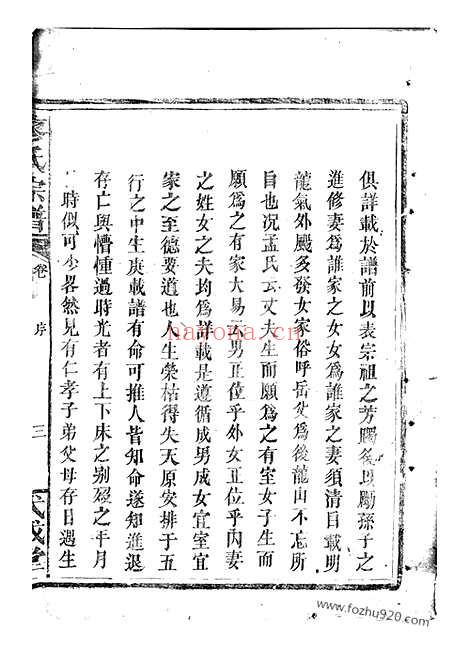 俱詳載於譜前以表宗祖之芳躅後以勵孫子之
進修妻爲誰家之女女爲誰家之妻須清目載明
龍氣外颺多發女家俗呼岳父爲後龍山不忘所
自也况孟氏云丈夫生而願爲之有室女子生而
願爲之有家大易云男正位乎外女正位乎内妻
之姓女之夫均爲詳載是遵循成男成女宜室宜
家之至德要道也人生榮枯得失天原安排于五
行之中生庚載譜有命可推人皆知命遂知進退
存亡與懵懂過時光者有上下床之别殁之年月
時似可少畧然見有仁孝子弟父母存日遇生
氏宗譜
卷
序
三
武威堂
nayona.cn
www.fozhu920.com